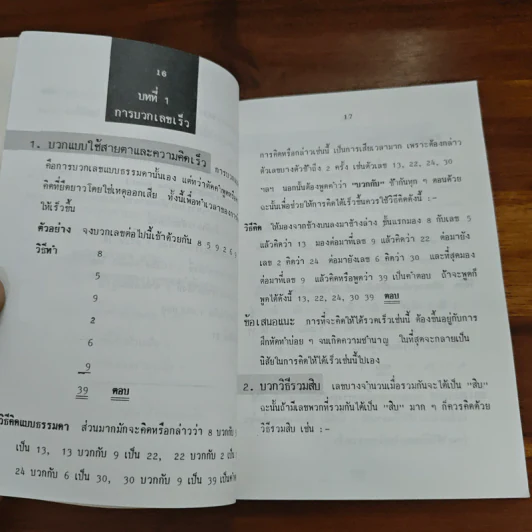 16
บทที่ 1
การบวกเลขเร็ว
1. บวกแบบใช้สายตาและความคิดเร็ว
คือการบวกเลขแบบธรรมดานั้นเอง
คิดที่ยืดยาวโดยใช้เหตุออกเสีย ทั้งนี้เพื่อ
ให้เร็วขึ้น
ตัวอย่าง จงบวกเลขต่อไปนี้เข้าด้วยกัน 8 5 9 2 6
วิธีทำ 8
5
9
2
6
9
39 ตอบ
วิธีคิดแบบธรรมดา ส่วนมากมักจะคิดหรือกล่าวว่า 8 บวกกับ
เป็น 13, 13 บวกกับ 9 เป็น 22, 22 บวกกับ 2
24 บวกกับ 6 เป็น 30, 30 บวกกับ 9 เป็น 39
17
การคิดหรือกล่าวเช่นนี้ เป็นการเสียเวลามาก เพราะต้องกล่าว
ตัวเลขบางตัวซ้ำถึง 2 ครั้ง เช่นตัวเลข 13, 22, 24, 30
ฯลฯ นอกนั้นต้องพูดคำว่า "บวกกับ" ซ้ำกันทุก ๆ ตอนด้วย
ฉะนั้นเพื่อช่วยให้การคิดได้เร็วขึ้นควรใช้วิธีคิดดังนี้ :-
วิธีคิด ให้มองจากข้างบนลงมาข้างล่าง ขั้นแรกมอง 8 กับเลข 5
แล้วคิดว่า 13 มองต่อมาที่เลข 9 แล้วคิดว่า 22 ต่อมายัง
เลข 2 คิดว่า 24 ต่อมายังเลข 6 คิดว่า 30 และที่สุดมอง
ต่อมาที่เลข 9 แล้วคิดหรือพูดว่า 39 เป็นคำตอบ ถ้าจะพูดก็
พูดได้ดังนี้ 13, 22, 24, 30 39 ตอบ
ข้อเสนอแนะ การที่จะคิดให้ได้รวดเร็วเช่นนี้ ต้องขึ้นอยู่กับการ
ฝึกหัดทำบ่อย ๆ จนเกิดความชำนาญ ในที่สุดจะกลายเป็น
นิสัยในการคิดให้ได้เร็วเช่นนี้ไปเอง
2. บวกวิธีรวมสิบ เลขบางจำนวนเมื่อรวมกันจะได้เป็น "สิบ"
ฉะนั้นถ้ามีเลขพวกที่รวมกันได้เป็น "สิบ" มาก ๆ ก็ควรคิดด้วย
วิธีรวมสิบ เช่น :-